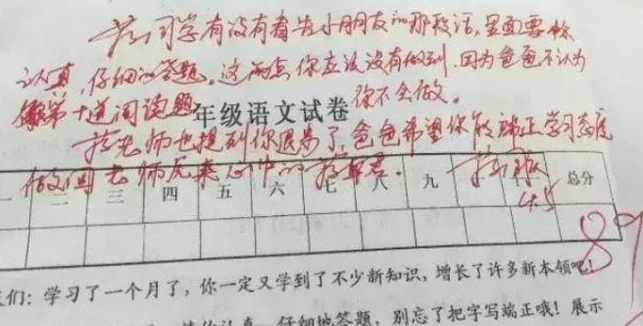 同学有没有看告小朋友的那段话,里面要你
认真,仔细的答题。这两点你应该没有做到,因为爸爸不认为
第十道阅读题 你不会做。
年级语文试卷
老师也提到你退步了,爸爸希望你能端正学习态度
做回老师原来心中的
一 二 三 四 五 六 七 八 九 总分
4.5
89
们:学习了一个月了,你一定又学到了不少新知识,增长了许多新本领吧!
仔细地答题,别忘了把字写端正哦!展示